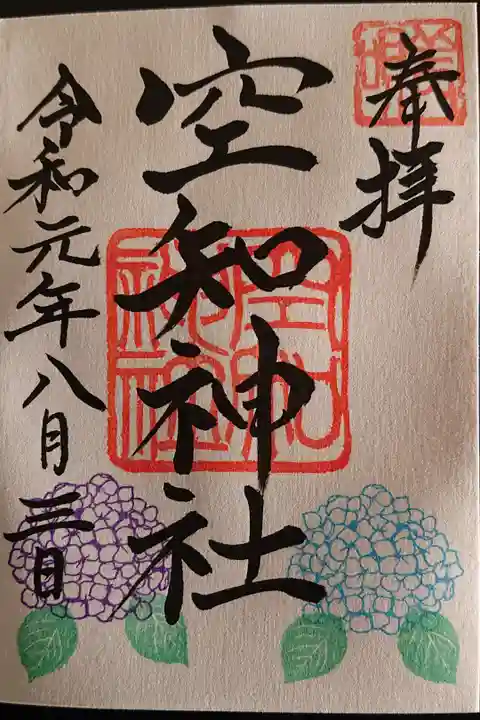 奉拝
空知神社
令和元年八月三日
空知神社